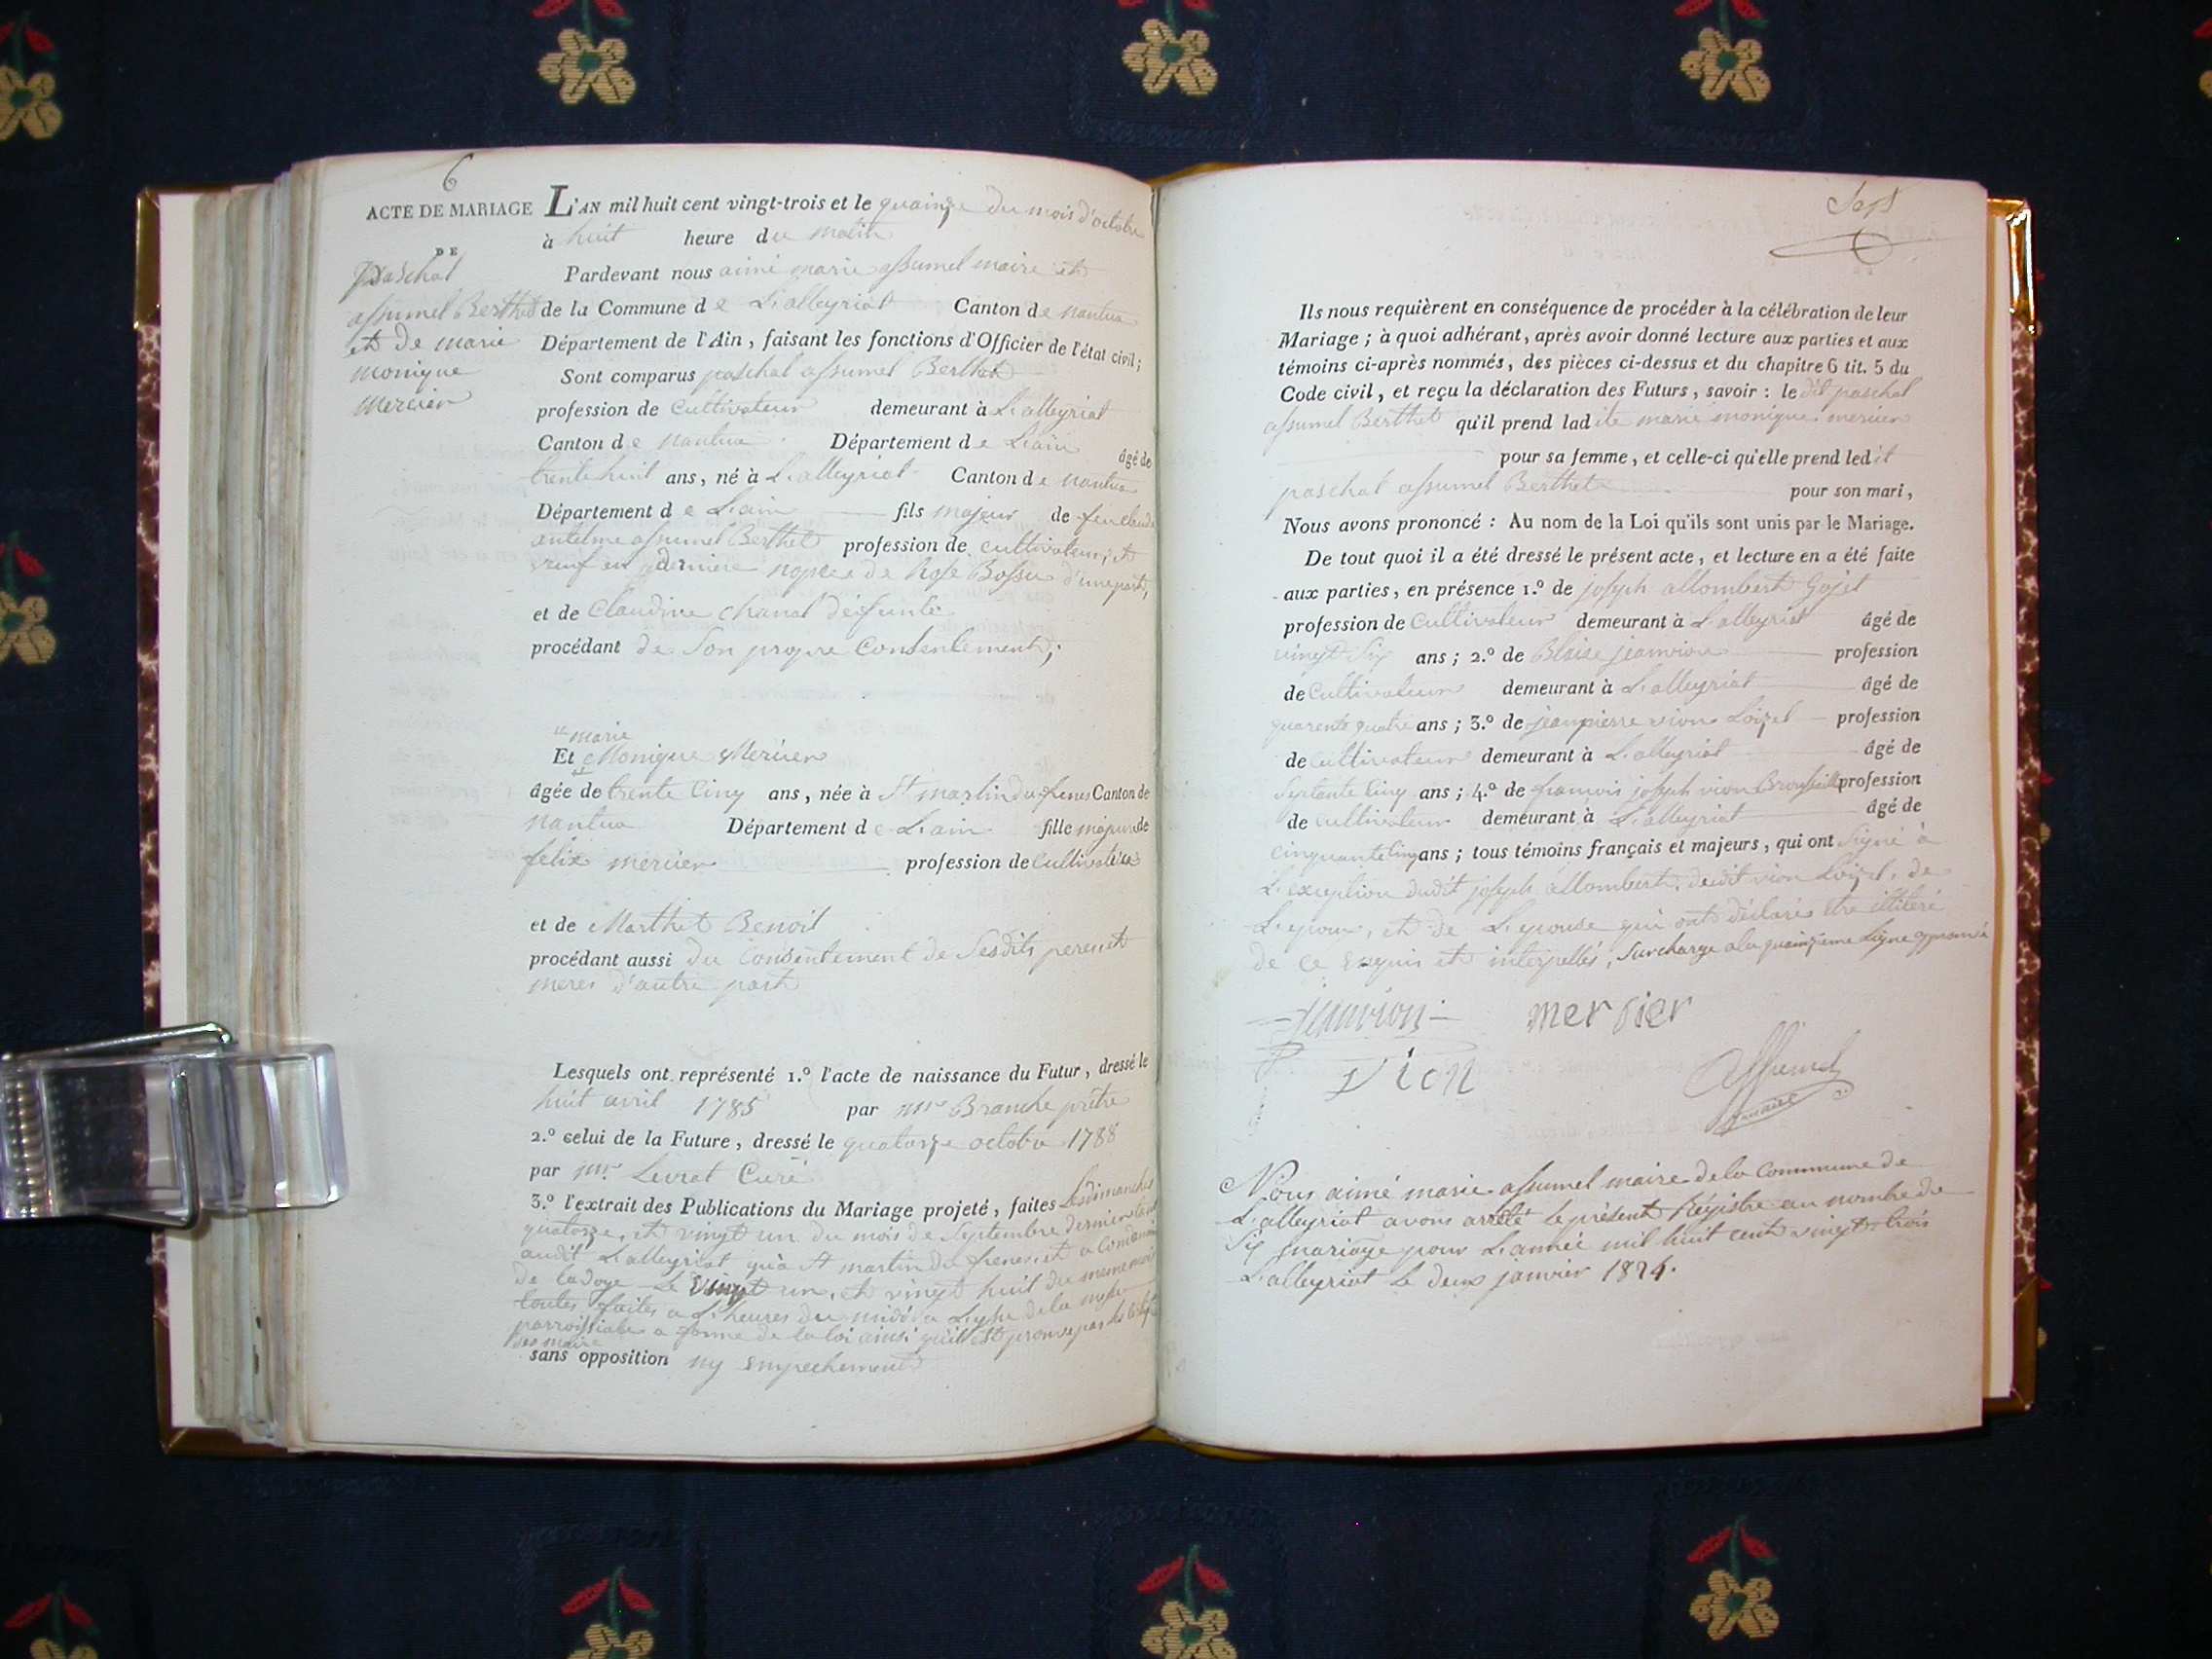 6
ACTE DE MARIAGE
DE
paschal
assumel Berthet
et de marie
monique
mercier
L'AN mil huit cent vingt-trois et le quainze du mois d'octobre
à huit heure du matin
Pardevant nous aimé marie assumel maire
de la Commune de L'alleyriat Canton de nantua
Département de l'Ain, faisant les fonctions d'Officier de l'état civil;
Sont comparus paschal assumel Berthet
profession de Cultivateur demeurant à L'alleyriat
Canton de nantua Département de L'ain âgé de
trente huit ans, né à L'alleyriat Canton de nantua
Département de L'ain fils majeur de feu claude
antelme assumel Berthet profession de cultivateur, et
veuf en derniere nopces de Rose Bossu d'une part,
et de Claudine chanal défunte
procédant de Son propre Consentement;
marie
Et Monique Mercier
âgée de trente Cinq ans, née à St martin du frenes Canton de
nantua Département de L'ain fille majeure de
felix mercier profession de Cultivateur
et de Marthe Benoit
procédant aussi du Consentement de Sesdits pere et
meres d'autre part
Lesquels ont représenté 1.º l'acte de naissance du Futur, dressé le
huit avril 1785 par mr Branche prêtre
2.º celui de la Future, dressé le quatorze octobre 1788
par mr Levrat Curé
3.º l'extrait des Publications du Mariage projeté, faites Les dimanches
quatorze, et vingt un du mois de Septembre dernier tant
audit L'alleyriat qu'à St martin du frenes, et a
de ladoye le vingt un, et vingt huit du meme mois
toutes faites a L'heures du midi a L'issue de la messe
parroissiale a forme de la loi ainsi qu'il est prouvé par les
des maire
sans opposition ny empechement
Sept
Ils nous requièrent en conséquence de procéder à la célébration de leur
Mariage; à quoi adhérant, après avoir donné lecture aux parties et aux
témoins ci-après nommés, des pièces ci-dessus et du chapitre 6 tit. 5 du
Code civil, et reçu la déclaration des Futurs, savoir: le dit paschal
assumel Berthet qu'il prend ladite marie monique mercier
pour sa femme, et celle-ci qu'elle prend ledit
paschal assumel Berthet pour son mari,
Nous avons prononcé: Au nom de la Loi qu'ils sont unis par le Mariage.
De tout quoi il a été dressé le présent acte, et lecture en a été faite
aux parties, en présence 1.º de joseph allombert Gojet
profession de Cultivateur demeurant à L'alleyriat âgé de
vingt Six ans; 2.º de Blaise jeanvion profession
de Cultivateur demeurant à L'alleyriat âgé de
quarente quatre ans; 3.º de jeanpierre vion Loizel profession
de cultivateur demeurant à L'alleyriat âgé de
Septante Cinq ans; 4.º de francois joseph vion profession
de cultivateur demeurant à L'alleyriat âgé de
Cinquante Cinq ans; tous témoins français et majeurs, qui ont Signé à
L'exception dudit joseph allombert, dudit vion Loizel, de
L'epoux, et de L'epouse qui ont déclarés être illitéré
de ce enquis et interpellés, Surcharge a la quainzieme Ligne approuvé
jeanvion mercier
vion
assumel
maire
Nous aimé marie assumel maire de la Commune de
L'alleyriat avons arrêté le présent Régistre au nombre de
Six mariage pour L'année mil huit cent vingt trois
L'alleyriat le deux janvier 1824.